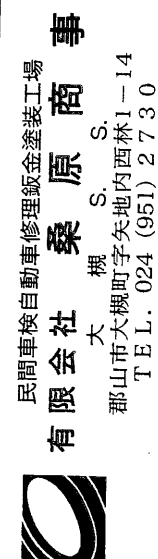 民間車検自動車修理鈑金塗装工場
有限会社 桑原商事
大槻 S. S.
郡山市大槻町字矢地内西林1-14
TEL. 024 (951) 2730